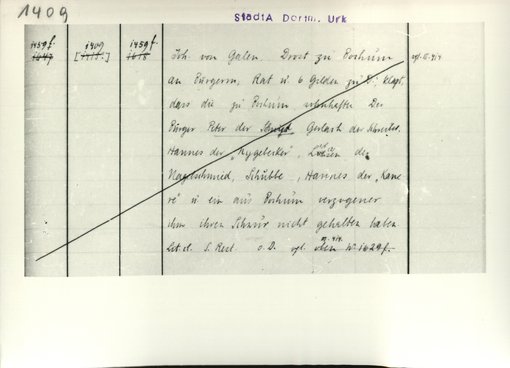 1409
StadtA Dortm. Urk
1459f. 1409 1459f.
1647 [1415.] 1618
Joh. von Galen, Drost zu Bochum
an Bürgerm., Rat u. 6 Gilden zu D.: klagt,
dass die zu Bochum wohnhafte Der
Bürger Peter der Gerlach der
Hannes der „Rygebecker“, der
Nagelschmied, Schübbe, Hannes der „Kane-
re“ u. ein aus Bochum verzogener
ihm ihren Schaur nicht gehalten haben
S. Rest. o. D. vgl. № 1629f.